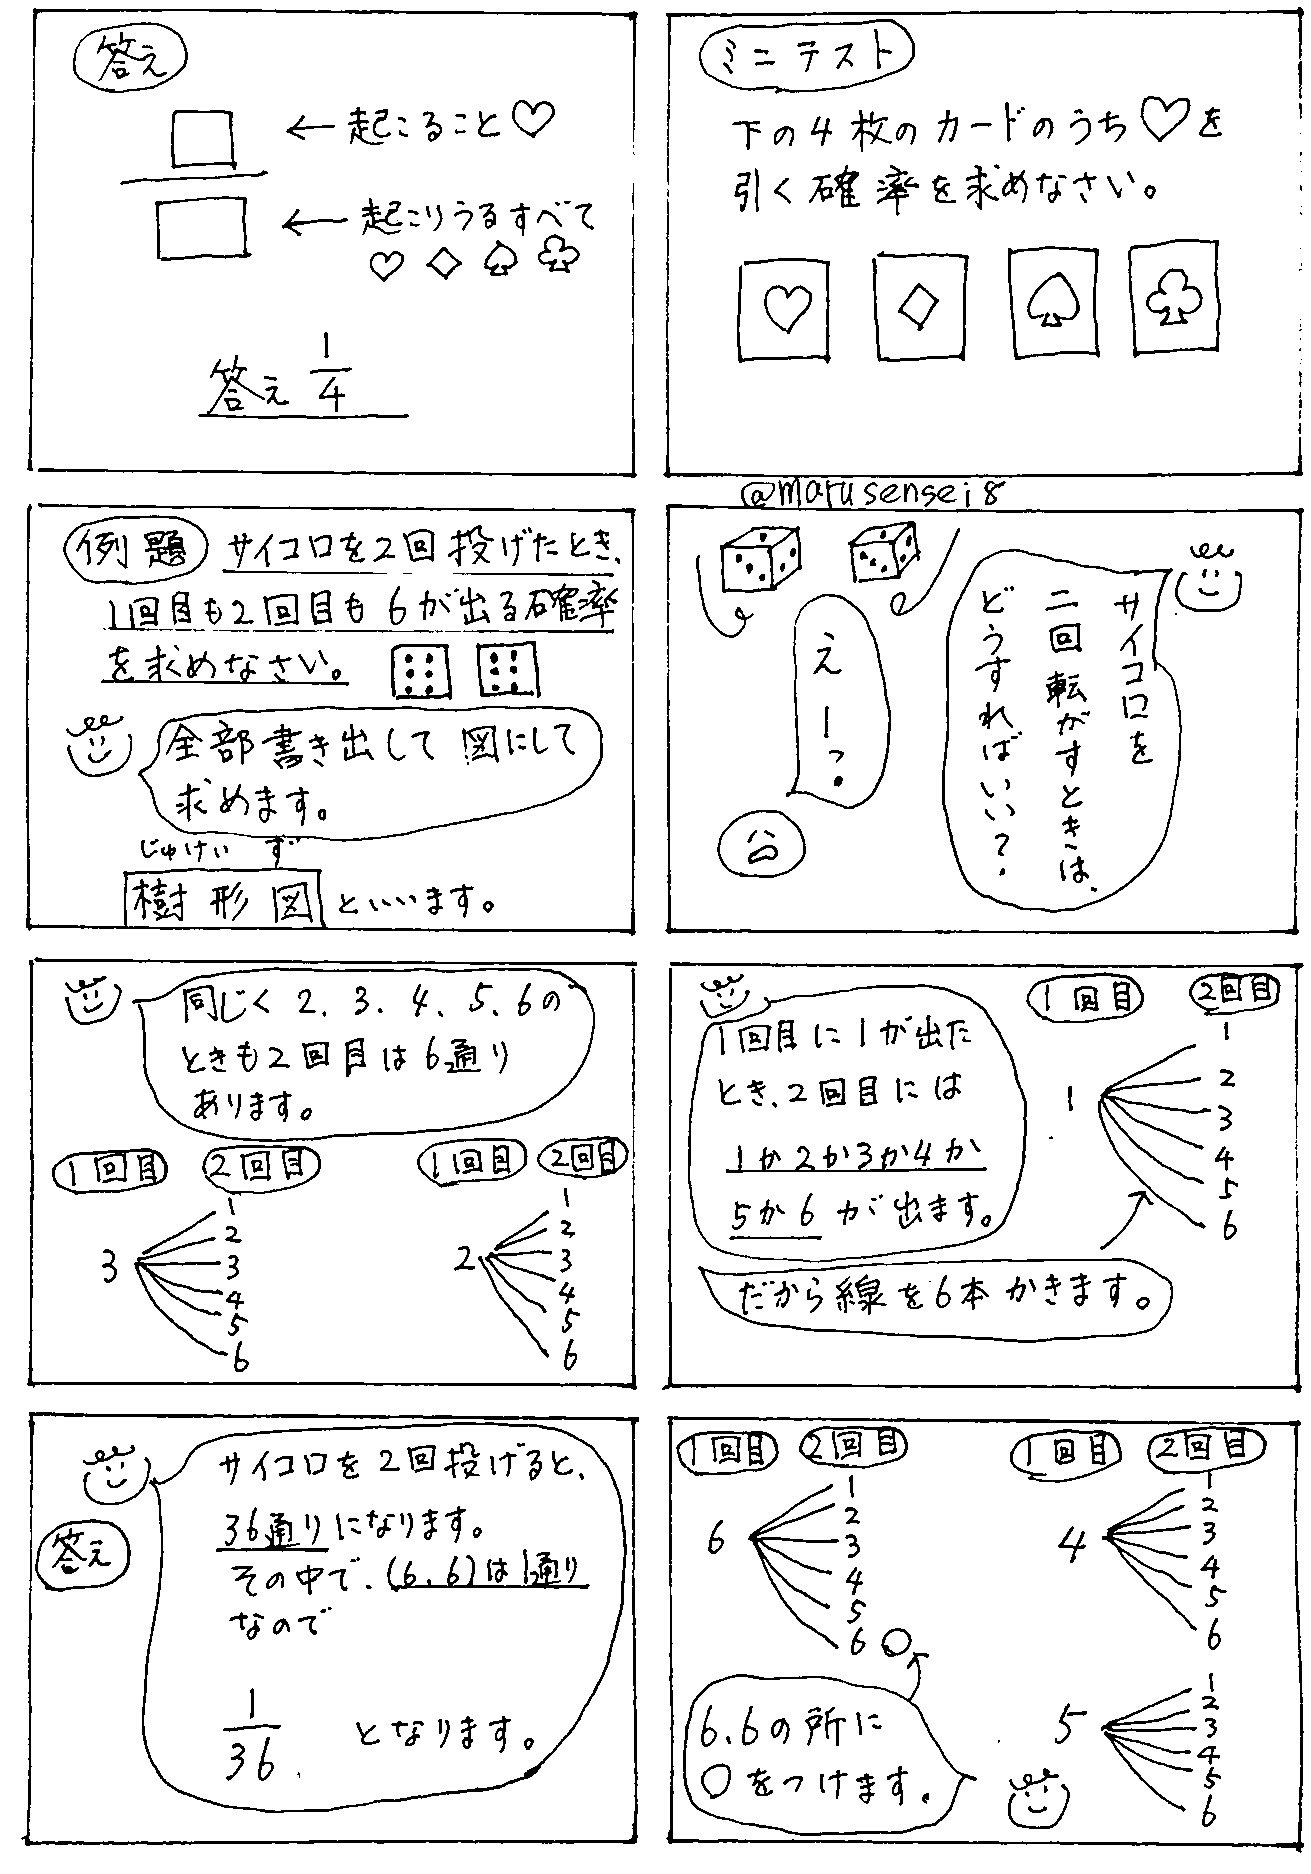 ミニテスト
下の4枚のカードのうち♡を
引く確率を求めなさい。
答え
←起こること♡
←起こりうるすべて
♡◇♤♧
答え 1/4
@marusensei8
サイコロを
二回転がすときは、
どうすればいい?
えーっ。
例題 サイコロを2回投げたとき、
1回目も2回目も6が出る確率
を求めなさい。
全部書き出して図にして
求めます。
じゅけい ず
樹形図といいます。
1回目に1が出た
とき、2回目には
1か2か3か4か
5か6が出ます。
1回目 2回目
1
1
2
3
4
5
6
だから線を6本かきます。
同じく2、3、4、5、6の
ときも2回目は6通り
あります。
1回目 2回目
2
1
2
3
4
5
6
1回目 2回目
3
1
2
3
4
5
6
1回目 2回目
4
1
2
3
4
5
6
5
1
2
3
4
5
6
1回目 2回目
6
1
2
3
4
5
6 ○
6.6の所に
○をつけます。
答え
サイコロを2回投げると、
36通りになります。
その中で、(6、6)は1通り
なので
1/36 となります。